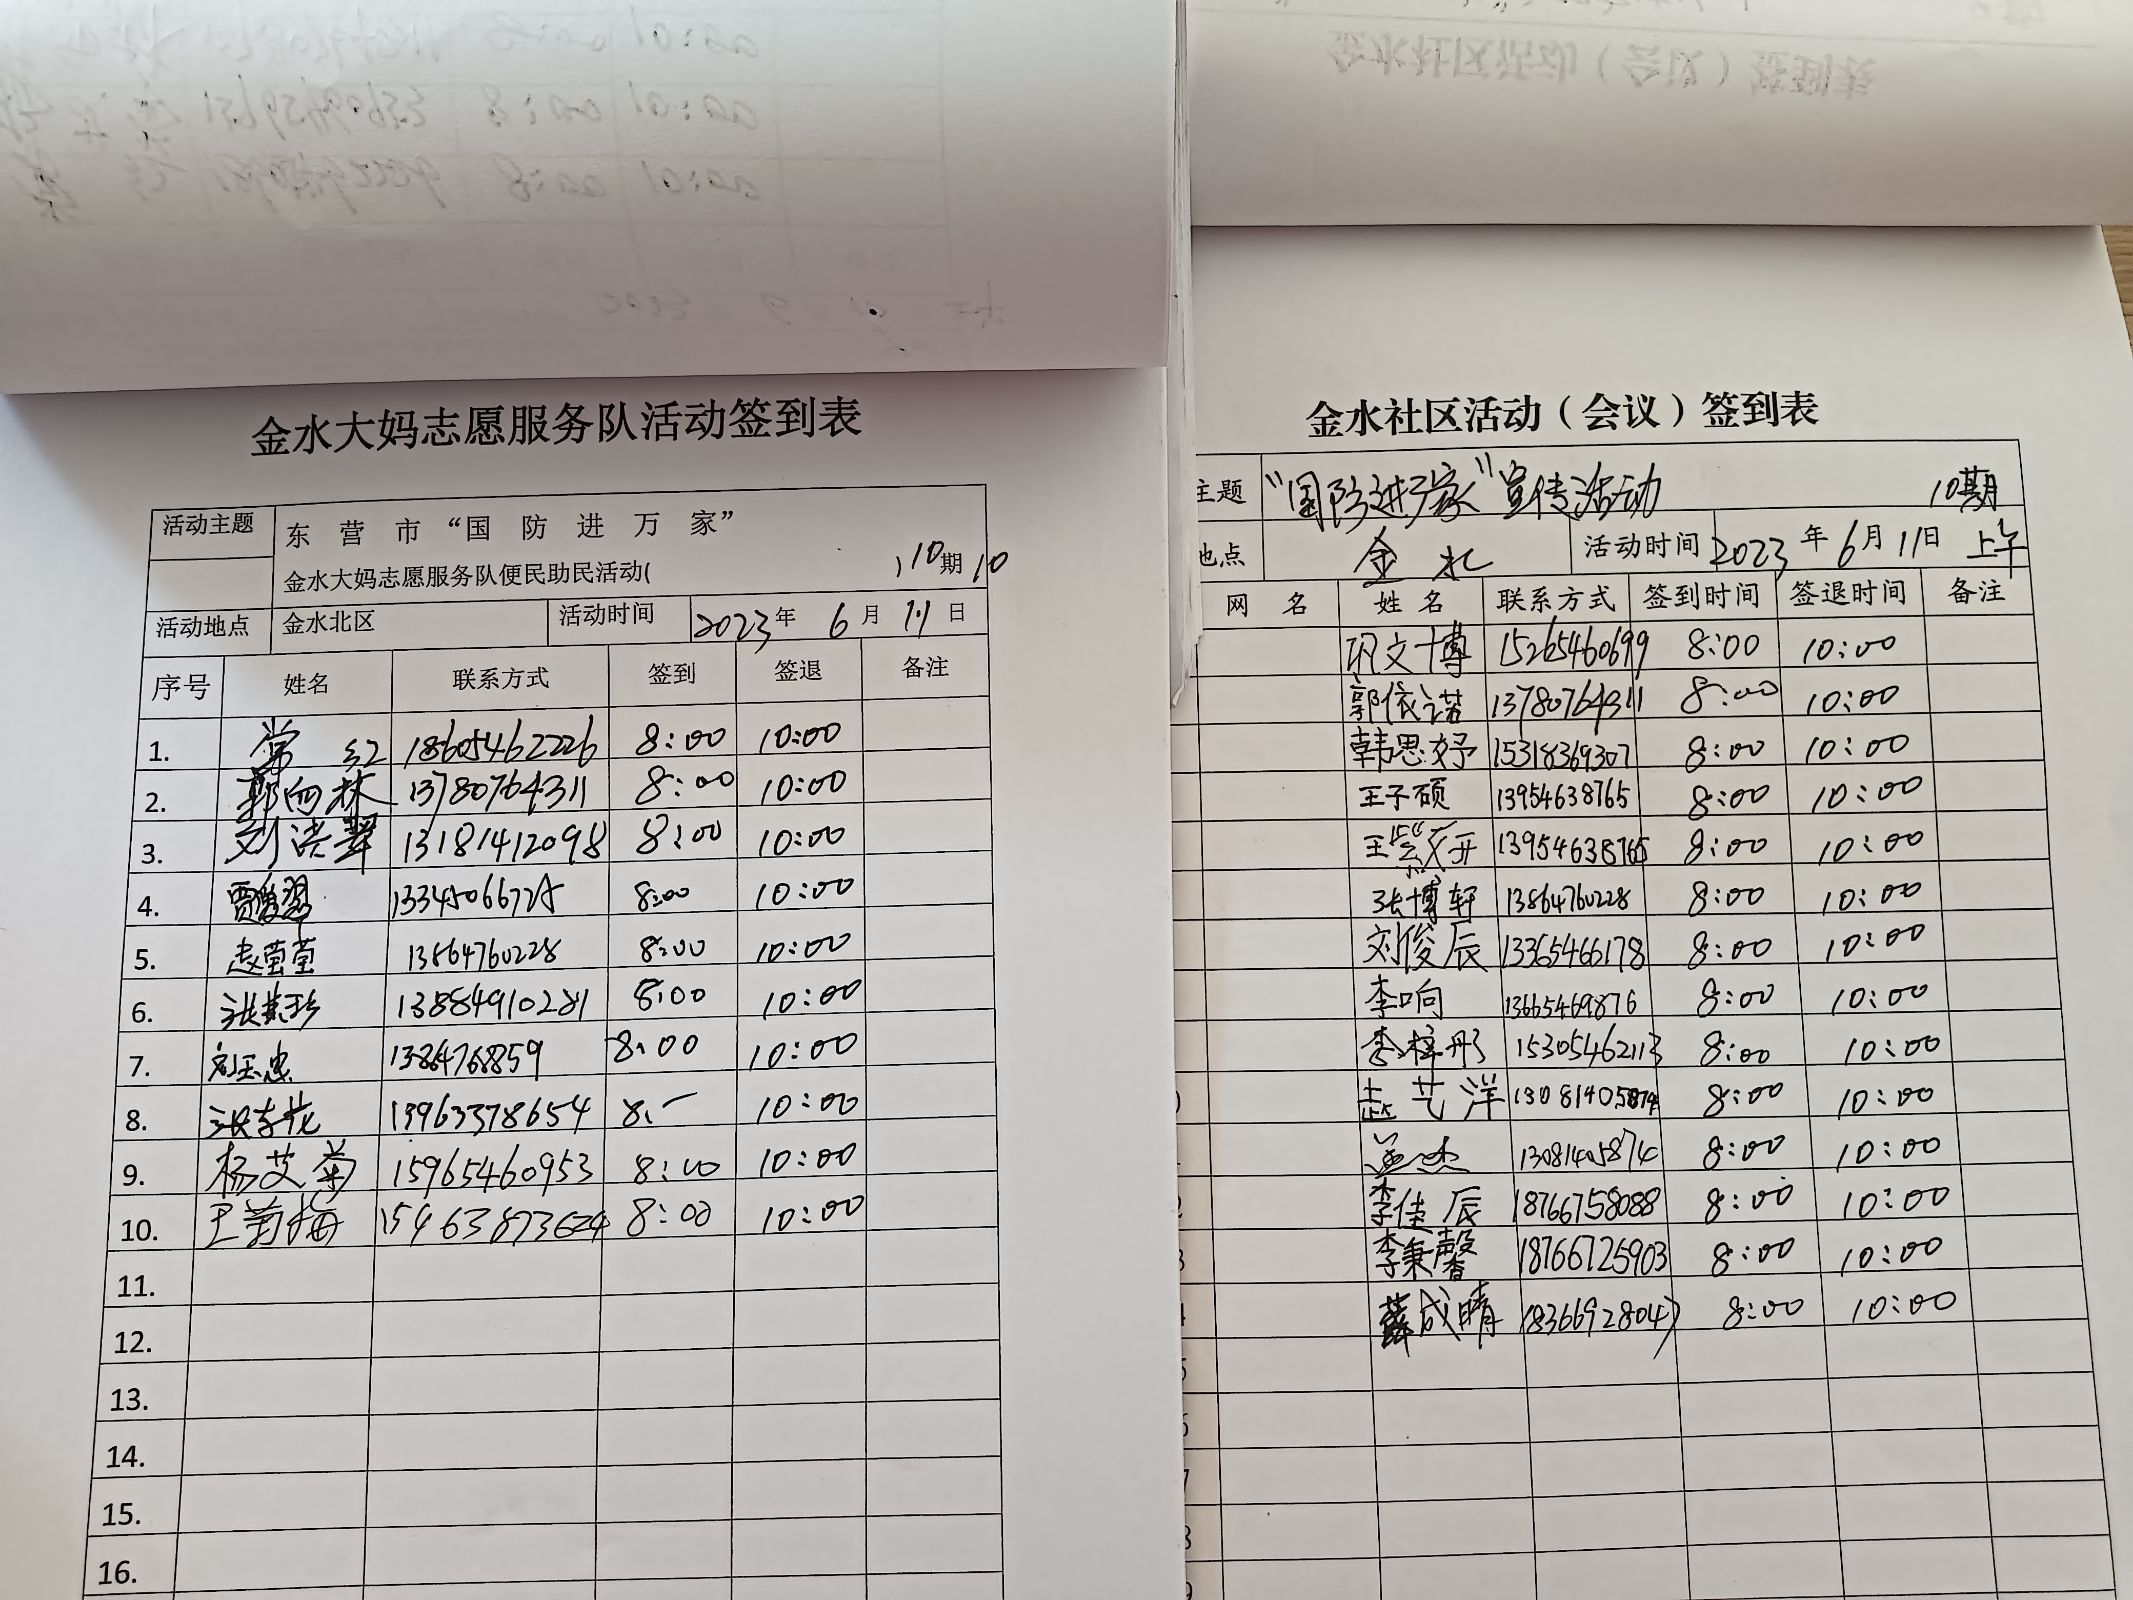 金水大妈志愿服务队活动签到表
活动主题 东营市“国防进万家”
金水大妈志愿服务队便民助民活动( )10期10
活动地点 金水北区 活动时间 2023年6月11日
序号 姓名 联系方式 签到 签退 备注
1. 常红 18605462226 8:00 10:00
2. 郭向林 13780764311 8:00 10:00
3. 刘洪翠 13181412098 8:00 10:00
4. 8:00 10:00
5. 赵莹莹 13864760228 8:00 10:00
6. 13884910281 8:00 10:00
7. 刘玉忠 8:00 10:00
8. 13963378654 8:- 10:00
9. 杨艾菊 15965460953 8:00 10:00
10. 王菊梅 15463873624 8:00 10:00
11.
12.
13.
14.
15.
16.
金水社区活动（会议）签到表
主题 “国防进万家”宣传活动 10期
地点 金水 活动时间 2023年6月11日 上午
网名 姓名 联系方式 签到时间 签退时间 备注
巩文博 15265460699 8:00 10:00
郭依诺 13780764311 8:00 10:00
韩思妤 15318369307 8:00 10:00
王子硕 13954638765 8:00 10:00
13954638765 8:00 10:00
张博轩 13864760228 8:00 10:00
刘俊辰 13365466178 8:00 10:00
李响 13665469876 8:00 10:00
李梓彤 15305462113 8:00 10:00
孟艺洋 13081405874 8:00 10:00
13081405874 8:00 10:00
李佳辰 18766758088 8:00 10:00
李秉馨 18766725903 8:00 10:00
薛成晴 18366928047 8:00 10:00